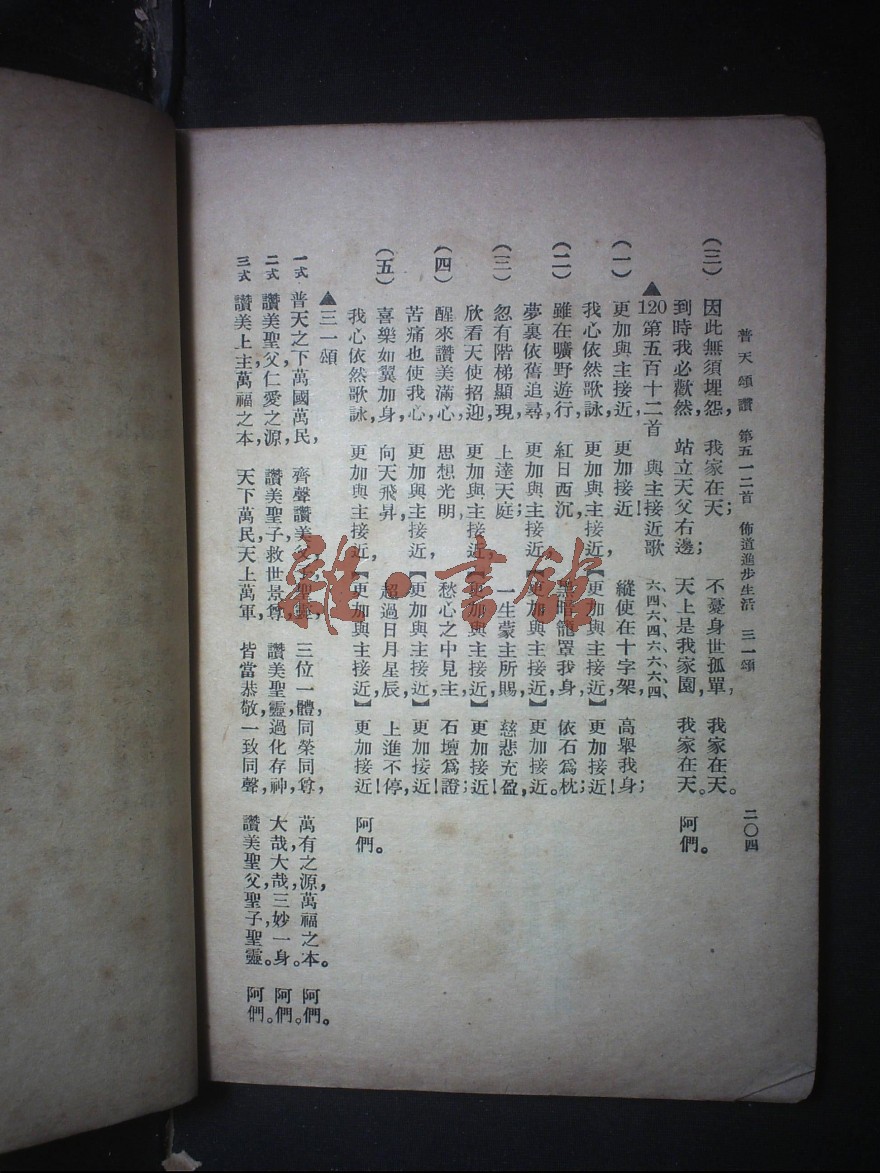 普天頌讚 第五一二首 佈道進步生活 三一頌 二〇四
(三) 因此無須埋怨, 我家在天; 不憂身世孤單, 我家在天。
到時我必歡然, 站立天父右邊; 天上是我家園, 我家在天。 阿們。
▲120第五百十二首 與主接近歌 六、四、六、四、六、六、六、四、
(一) 更加與主接近, 更加接近! 縱使在十字架, 高舉我身;
我心依然歌詠, 更加與主接近,【更加與主接近,】更加接近!
(二) 雖在曠野遊行, 紅日西沉, 黑暗籠罩我身, 依石爲枕;
夢裏依舊追尋, 更加與主接近,【更加與主接近,】更加接近。
(三) 忽有階梯顯現, 上達天庭; 一生蒙主所賜, 慈悲充盈,
欣看天使招迎, 更加與主接近【更加與主接近,】更加接近!
(四) 醒來讚美滿心, 思想光明, 愁心之中見主, 石壇爲證;
苦痛也使我心, 更加與主接近,【更加與主接近,】更加接近!
(五) 喜樂如翼加身, 向天飛昇, 超過日月星辰, 上進不停,
我心依然歌詠, 更加與主接近,【更加與主接近,】更加接近! 阿們。
▲三一頌
一式 普天之下萬國萬民, 齊聲讚美父子聖靈, 三位一體,同榮同尊, 萬有之源,萬福之本。 阿們。
二式 讚美聖父仁愛之源, 讚美聖子救世景尊, 讚美聖靈過化存神, 大哉大哉三妙一身。 阿們。
三式 讚美上主,萬福之本, 天下萬民,天上萬軍, 皆當恭敬一致同聲, 讚美聖父,聖子聖靈。 阿們。
雜·書館